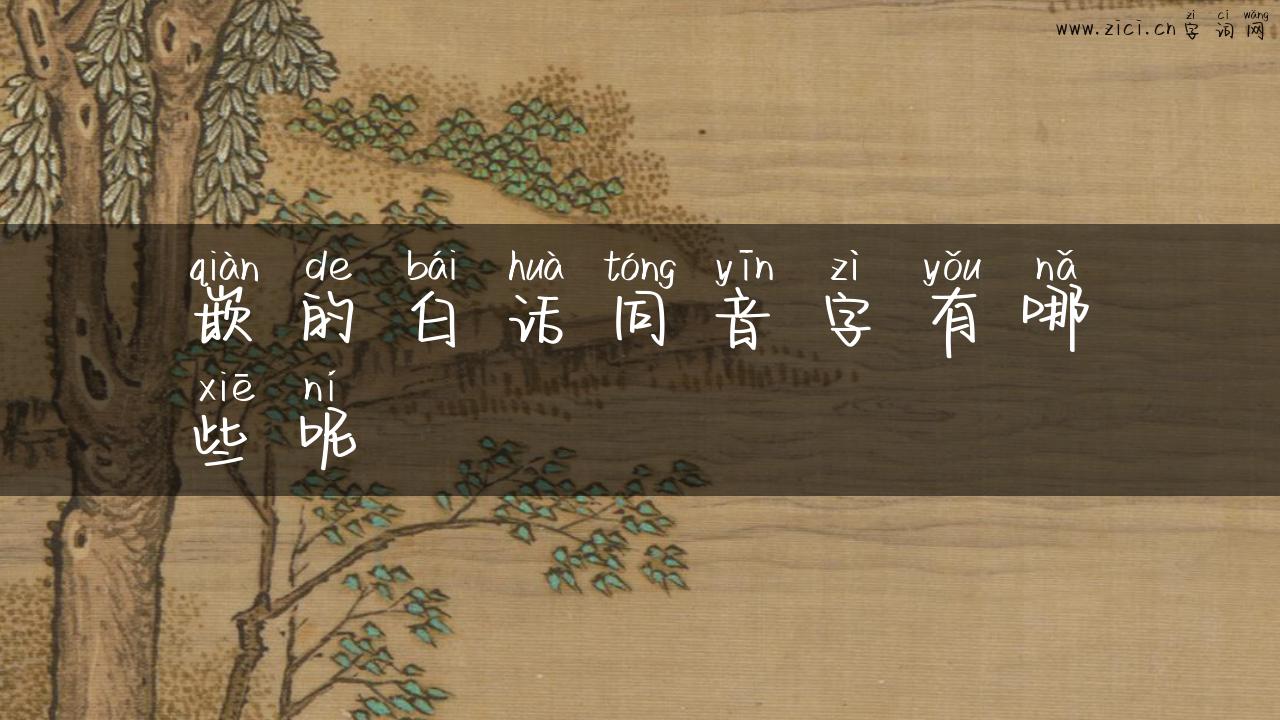 zì cí wǎng
www.zici.cn 字词网
qiàn de bái huà tóng yīn zì yǒu nǎ
嵌的白话同音字有哪
xiē ní
些呢